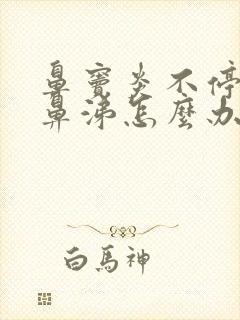 鼻竇炎不停
鼻涕怎麼办
白馬神